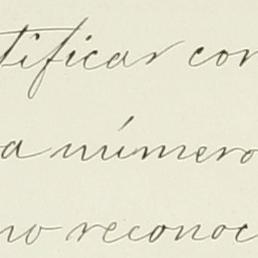 tificar con
a número
no reconoc